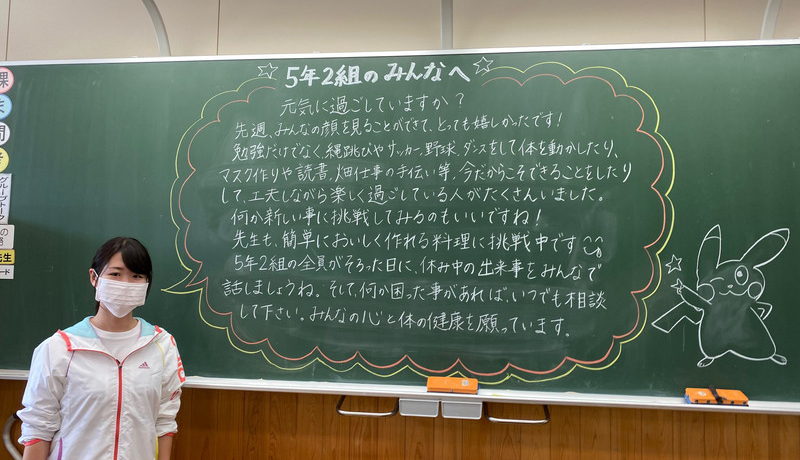 5年2組のみんなへ
元気に過ごしていますか？
先週、みんなの顔を見ることができて、とっても嬉しかったです！
勉強だけでなく、縄跳びやサッカー、野球、ダンスをして体を動かしたり、
マスク作りや読書、畑仕事の手伝い等、今だからこそできることをしたり
して、工夫しながら楽しく過ごしている人がたくさんいました。
何か新しい事に挑戦してみるのもいいですね！
先生も、簡単においしく作れる料理に挑戦中です
5年2組の全員がそろった日に、休み中の出来事をみんなで
話しましょうね。そして、何か困った事があれば、いつでも相談
して下さい。みんなの心と体の健康を願っています。
課
ま
問
グループトーク
の
き
先生
ード
adidas